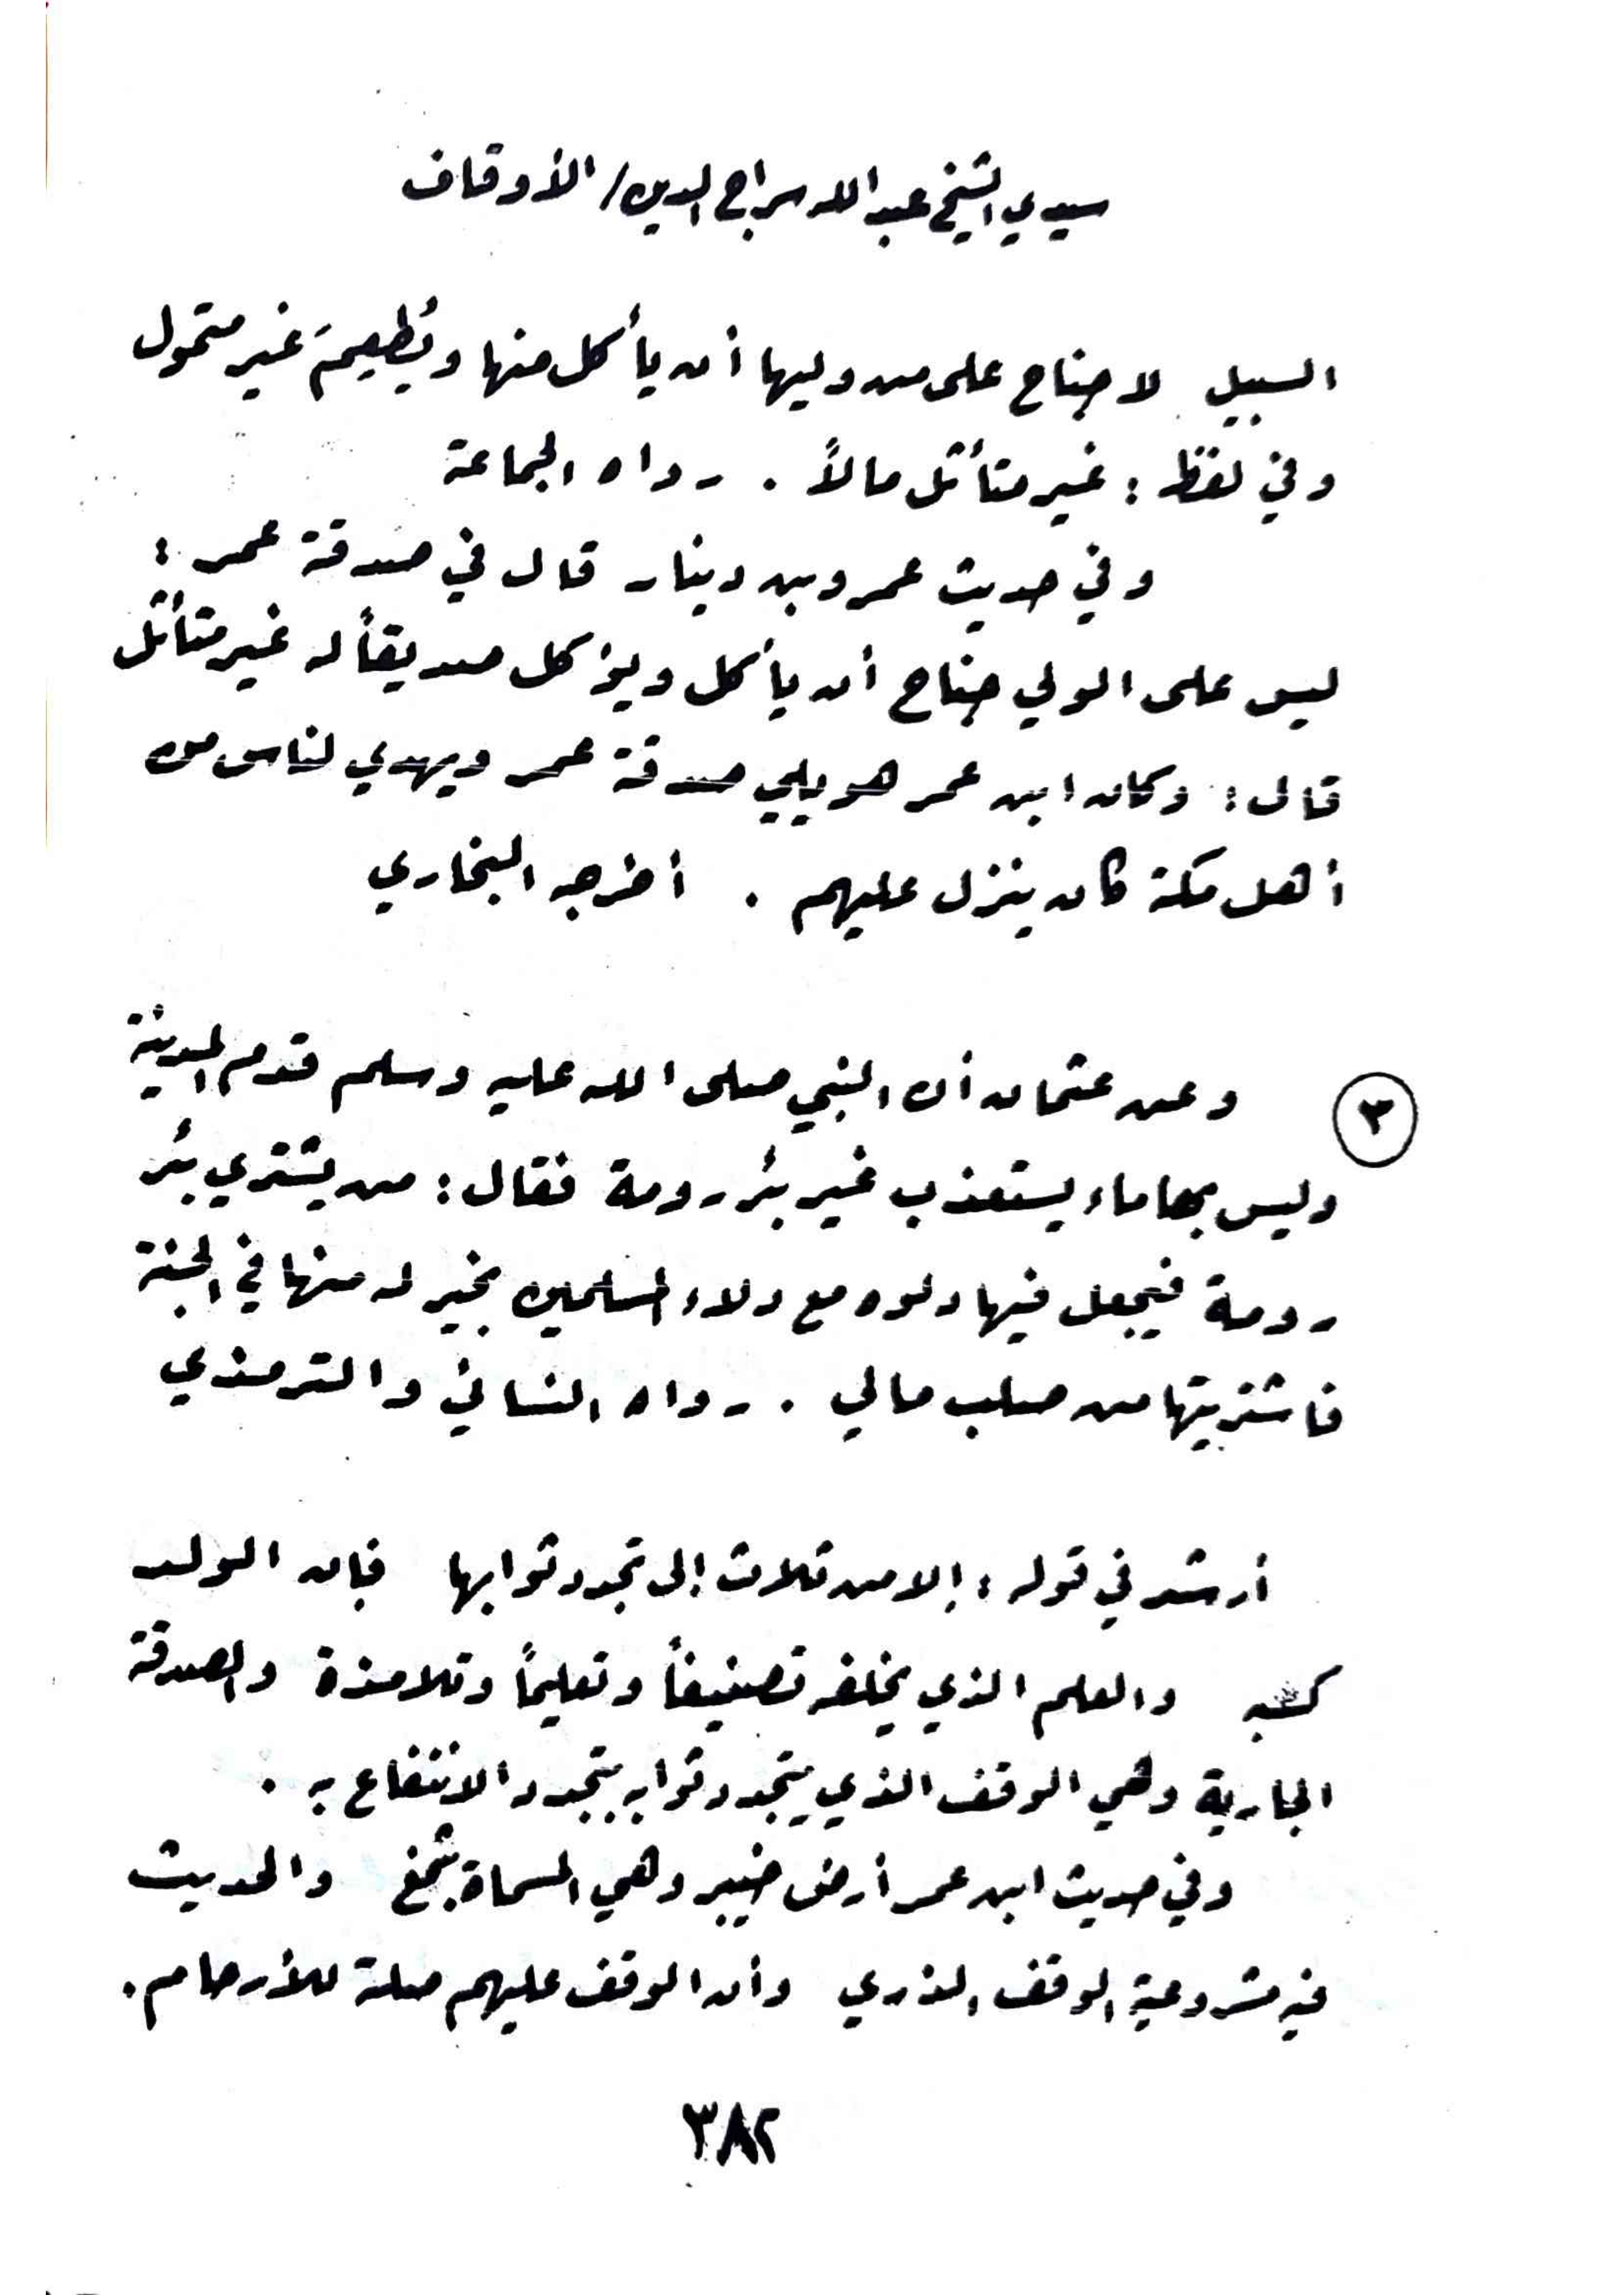 سيدي الشيخ عبد الله سراج الدين / الأوقاف
السبيل لا جناح على من وليها أن يأكل منها ويُطعِمَ غير متمول
وفي لفظ : غير متأثل مالاً . رواه الجماعة
وفي حديث عمرو بن دينار قال في صدقة عمر :
ليس على الولي جناح أن يأكل ويؤكل صديقاً له غير متأثل
قال : وكان ابن عمر هو يلي صدقة عمر ويهدي لناس من
أهل مكة كان ينزل عليهم . أخرجه البخاري
٣ وعن عثمان أن النبي صلى الله عليه وسلم قدم المدينة
وليس بها ماء يستعذب غير بئر رومة فقال : من يشتري بئر
رومة فيجعل فيها دلوه مع دلاء المسلمين بخير له منها في الجنة
فاشتريتها من صلب مالي . رواه النسائي والترمذي
أرشد في قوله : إلا من ثلاث إلى تجدد ثوابها فإن الولد
كسبه والعلم الذي يخلفه تصنيفاً وتعليماً وتلامذة والصدقة
الجارية وهي الوقف الذي يتجدد ثوابه بتجدد الانتفاع به .
وفي حديث ابن عمر أرض خيبر وهي المسماة بثمغ والحديث
فيه مشروعية الوقف الذري وأن الوقف عليهم صلة للأرحام .
٣٨٢